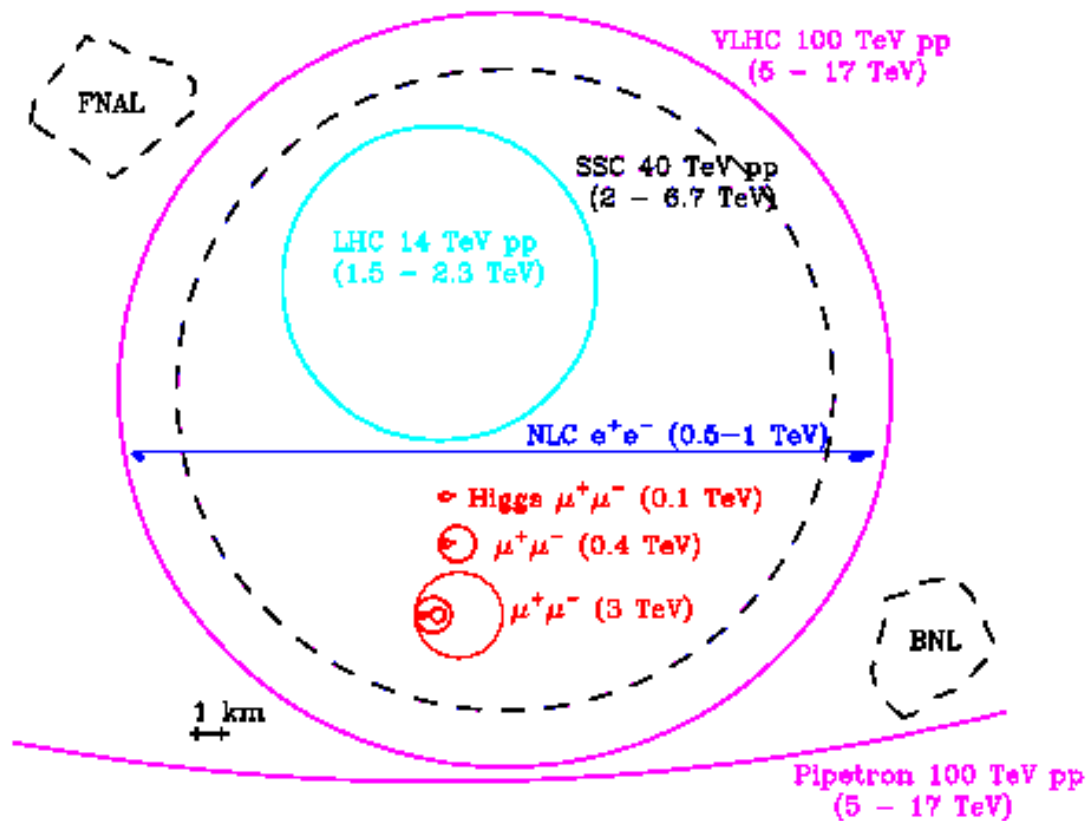 VLHC 100 TeV pp
(5 - 17 TeV)
FNAL
SSC 40 TeV pp
(2 - 6.7 TeV)
LHC 14 TeV pp
(1.5 - 2.3 TeV)
NLC e⁺e⁻ (0.5-1 TeV)
Higgs μ⁺μ⁻ (0.1 TeV)
μ⁺μ⁻ (0.4 TeV)
μ⁺μ⁻ (3 TeV)
BNL
1 km
Pipetron 100 TeV pp
(5 - 17 TeV)